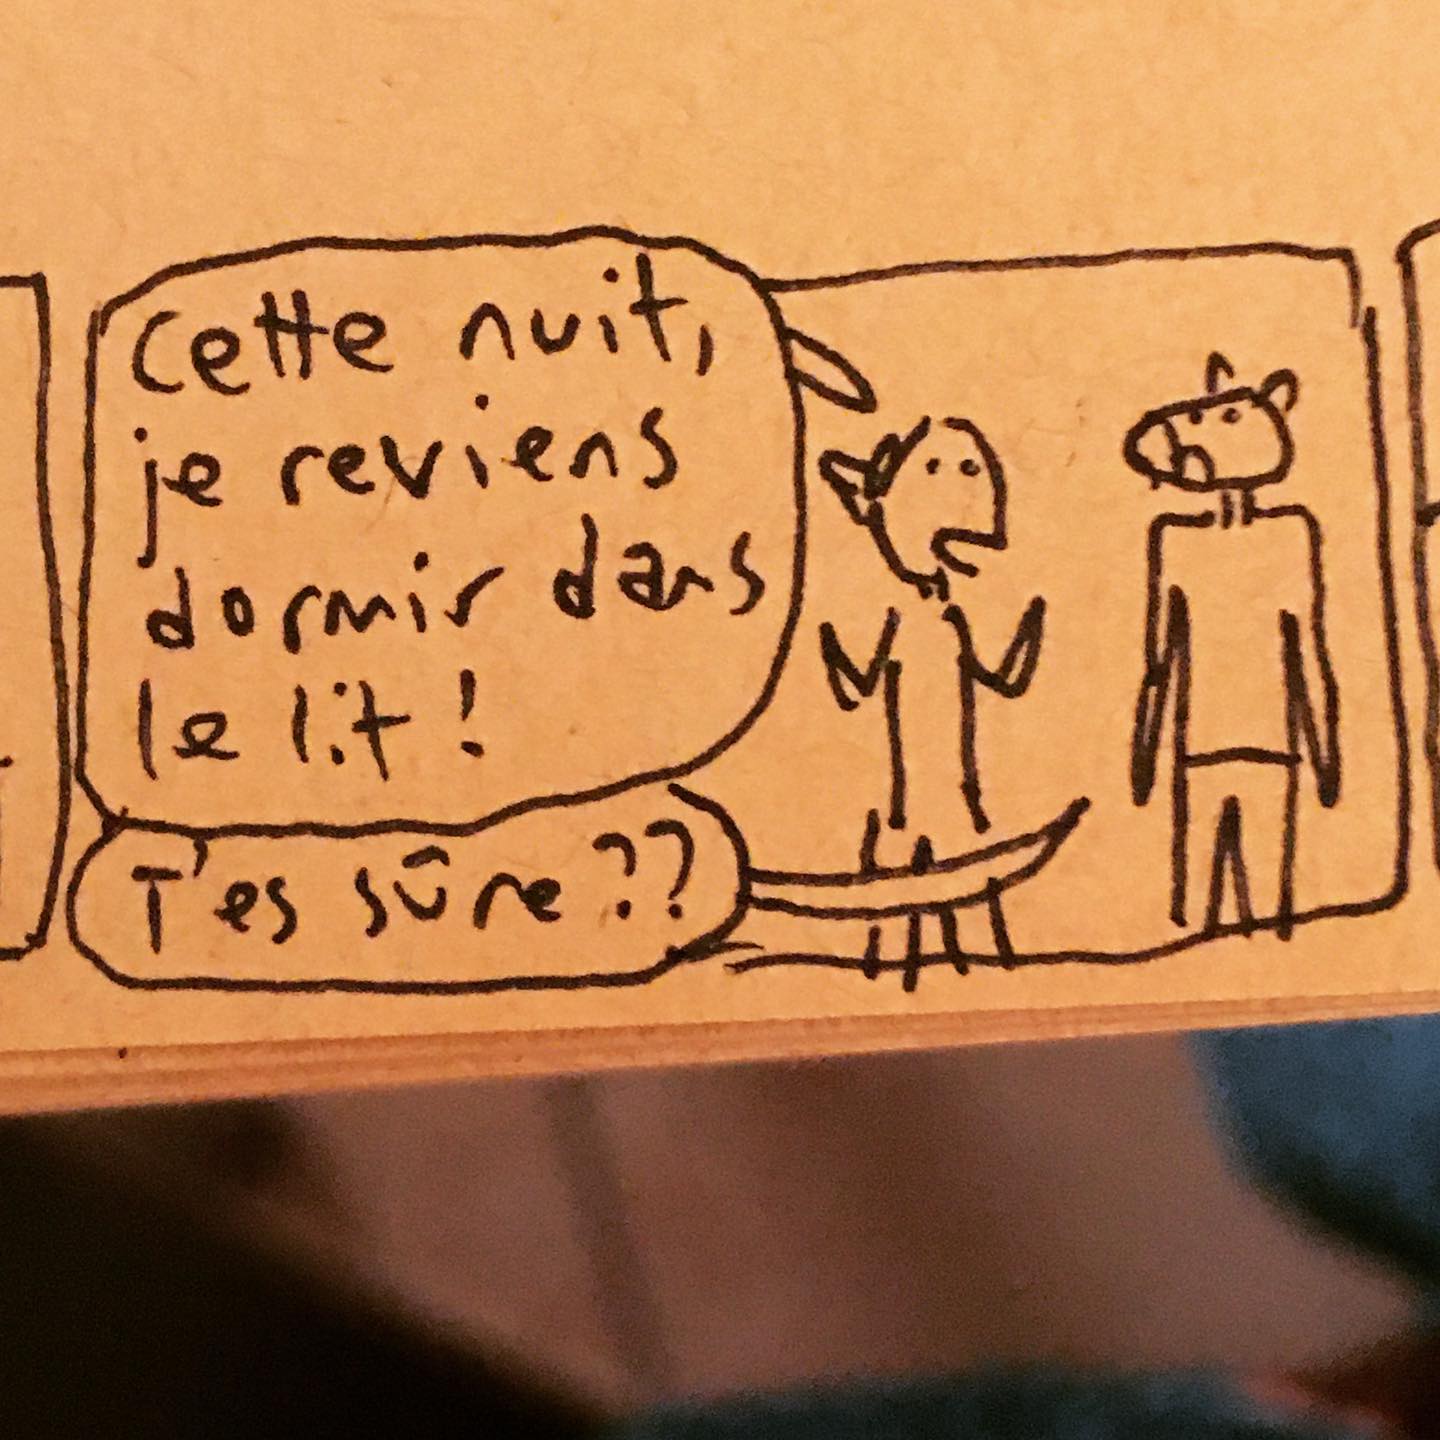 Cette nuit,
je reviens
dormir dans
le lit !
T'es sûre ??